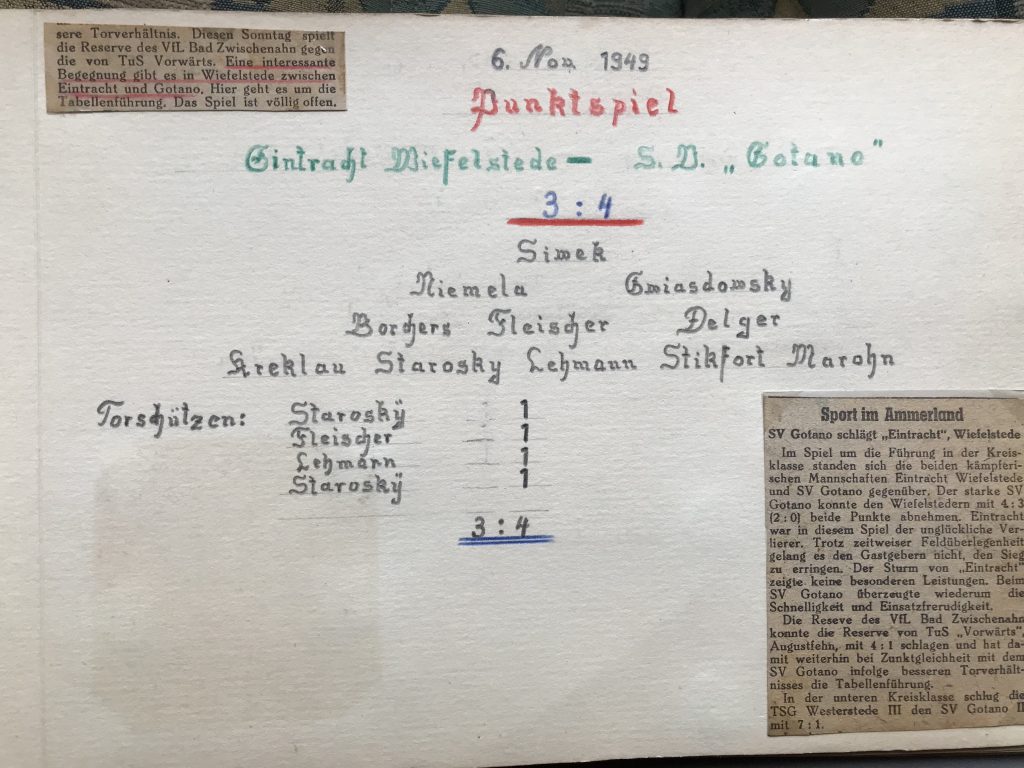 sere Torverhältnis. Diesen Sonntag spielt
die Reserve des VfL Bad Zwischenahn gegen
die von TuS Vorwärts. Eine interessante
Begegnung gibt es in Wiefelstede zwischen
Eintracht und Gotano. Hier geht es um die
Tabellenführung. Das Spiel ist völlig offen.
6. Nov. 1949
Punktspiel
Eintracht Wiefelstede — S. V. „Gotano"
3 : 4
Simek
Niemela Gwiasdowsky
Borchers Fleischer Delger
Kreklau Starosky Lehmann Stikfort Marohn
Torschützen: Staroskÿ 1
Fleischer 1
Lehmann 1
Staroskÿ 1
3 : 4
Sport im Ammerland
SV Gotano schlägt „Eintracht", Wiefelstede
Im Spiel um die Führung in der Kreis-
klasse standen sich die beiden kämpferi-
schen Mannschaften Eintracht Wiefelstede
und SV Gotano gegenüber. Der starke SV
Gotano konnte den Wiefelstedern mit 4 : 3
(2 : 0) beide Punkte abnehmen. Eintracht
war in diesem Spiel der unglückliche Ver-
lierer. Trotz zeitweiser Feldüberlegenheit
gelang es den Gastgebern nicht, den Sieg
zu erringen. Der Sturm von „Eintracht"
zeigte keine besonderen Leistungen. Beim
SV Gotano überzeugte wiederum die
Schnelligkeit und Einsatzfrerudigkeit.
Die Reseve des VfL Bad Zwischenahn
konnte die Reserve von TuS „Vorwärts",
Augustfehn, mit 4 : 1 schlagen und hat da-
mit weiterhin bei Zunktgleichheit mit dem
SV Gotano infolge besseren Torverhält-
nisses die Tabellenführung. —
In der unteren Kreisklasse schlug die
TSG Westerstede III den SV Gotano II
mit 7 : 1.